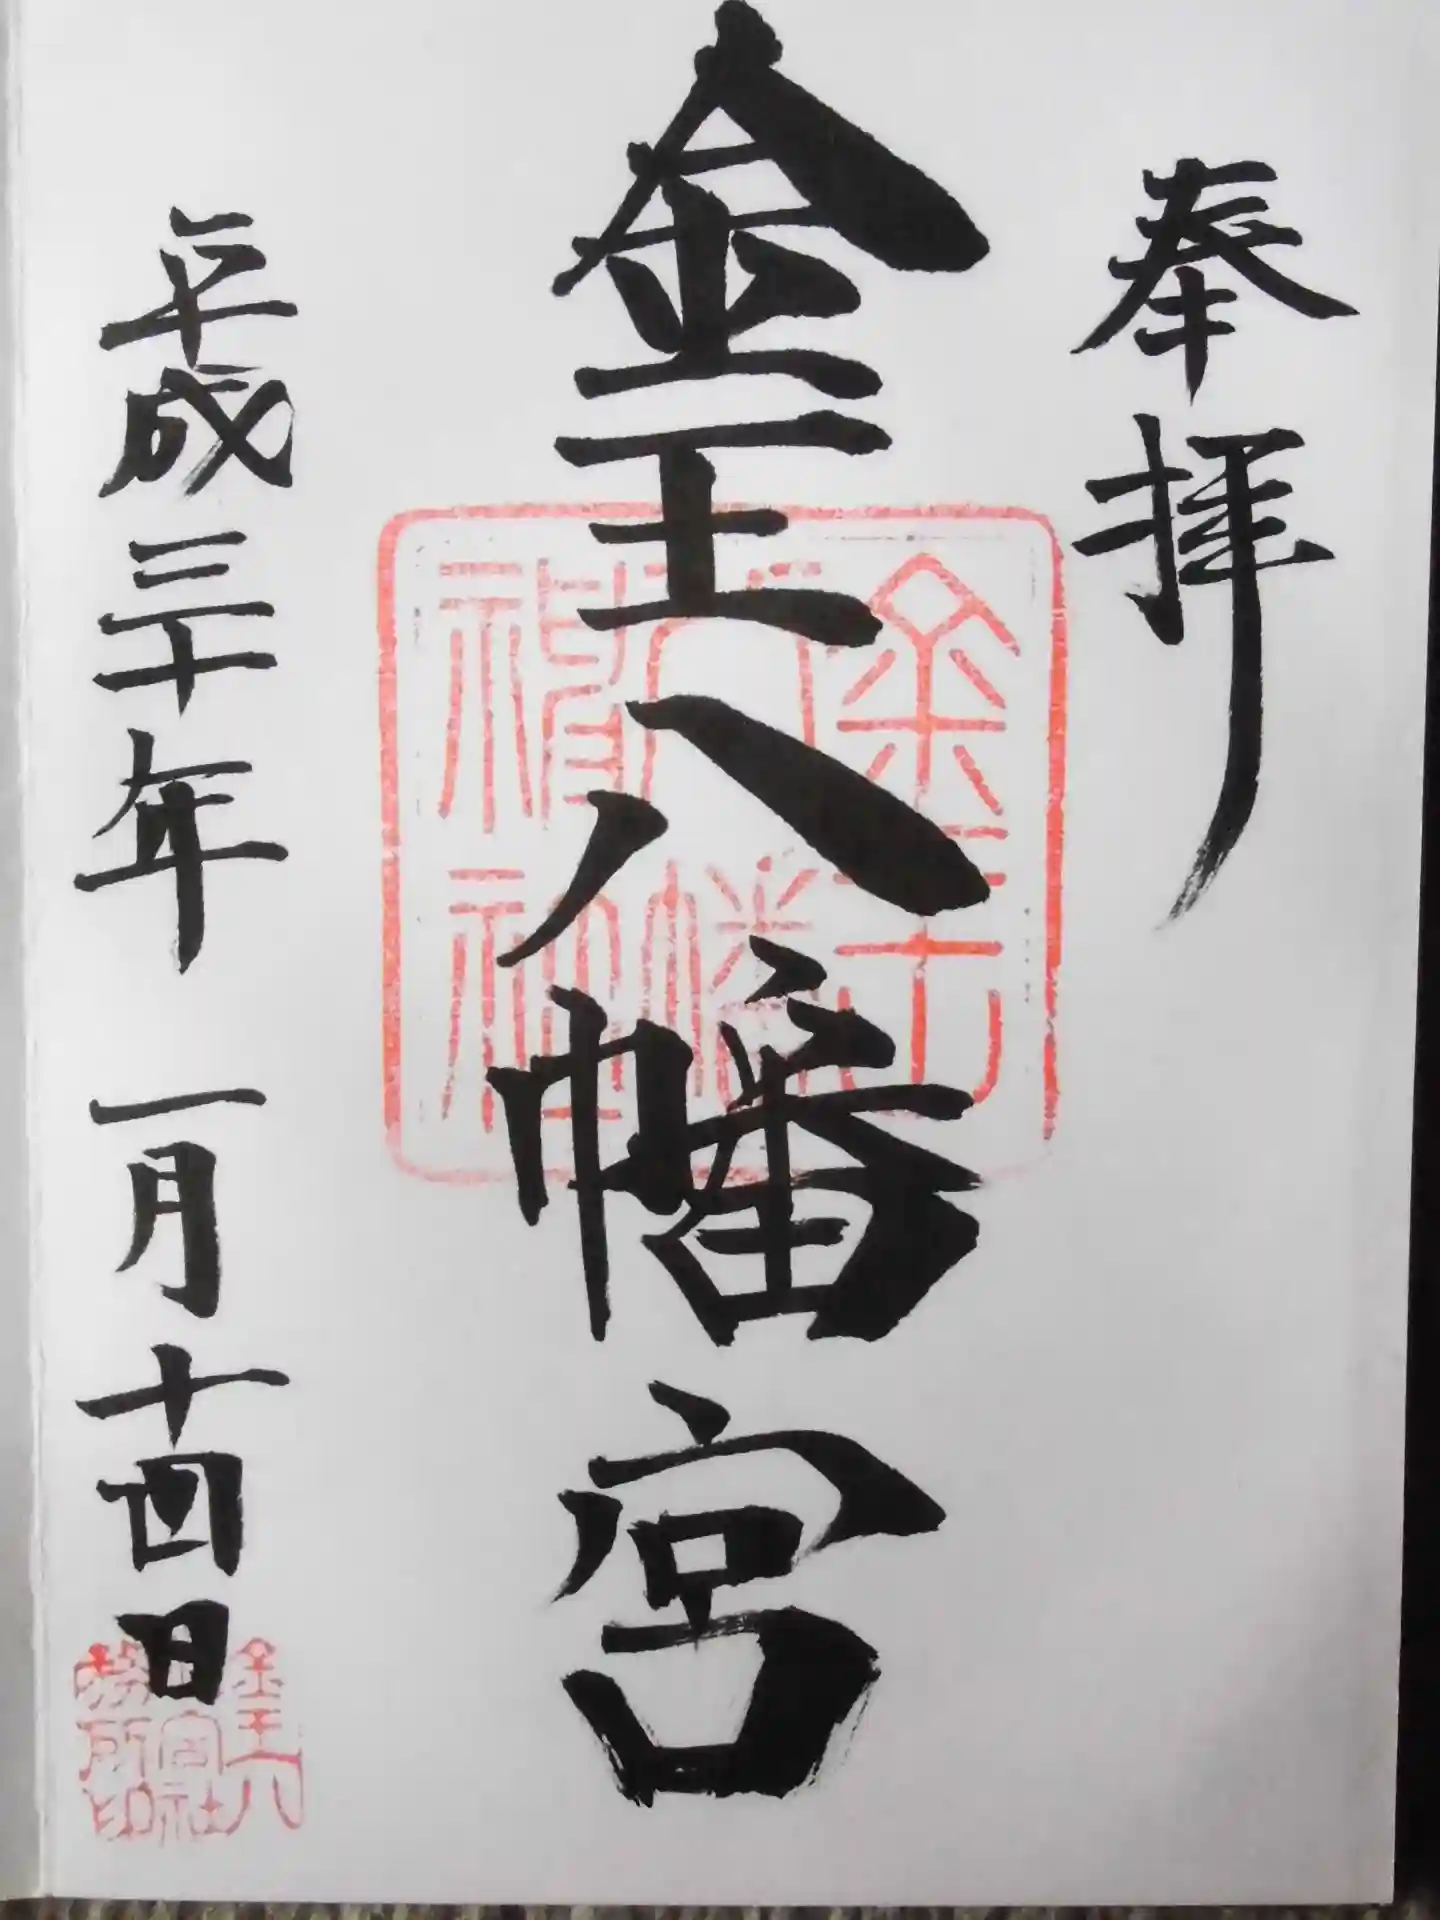 奉拝
金王八幡宮
平成三十年 一月十四日
金王八幡神社
金王八幡宮社務所印